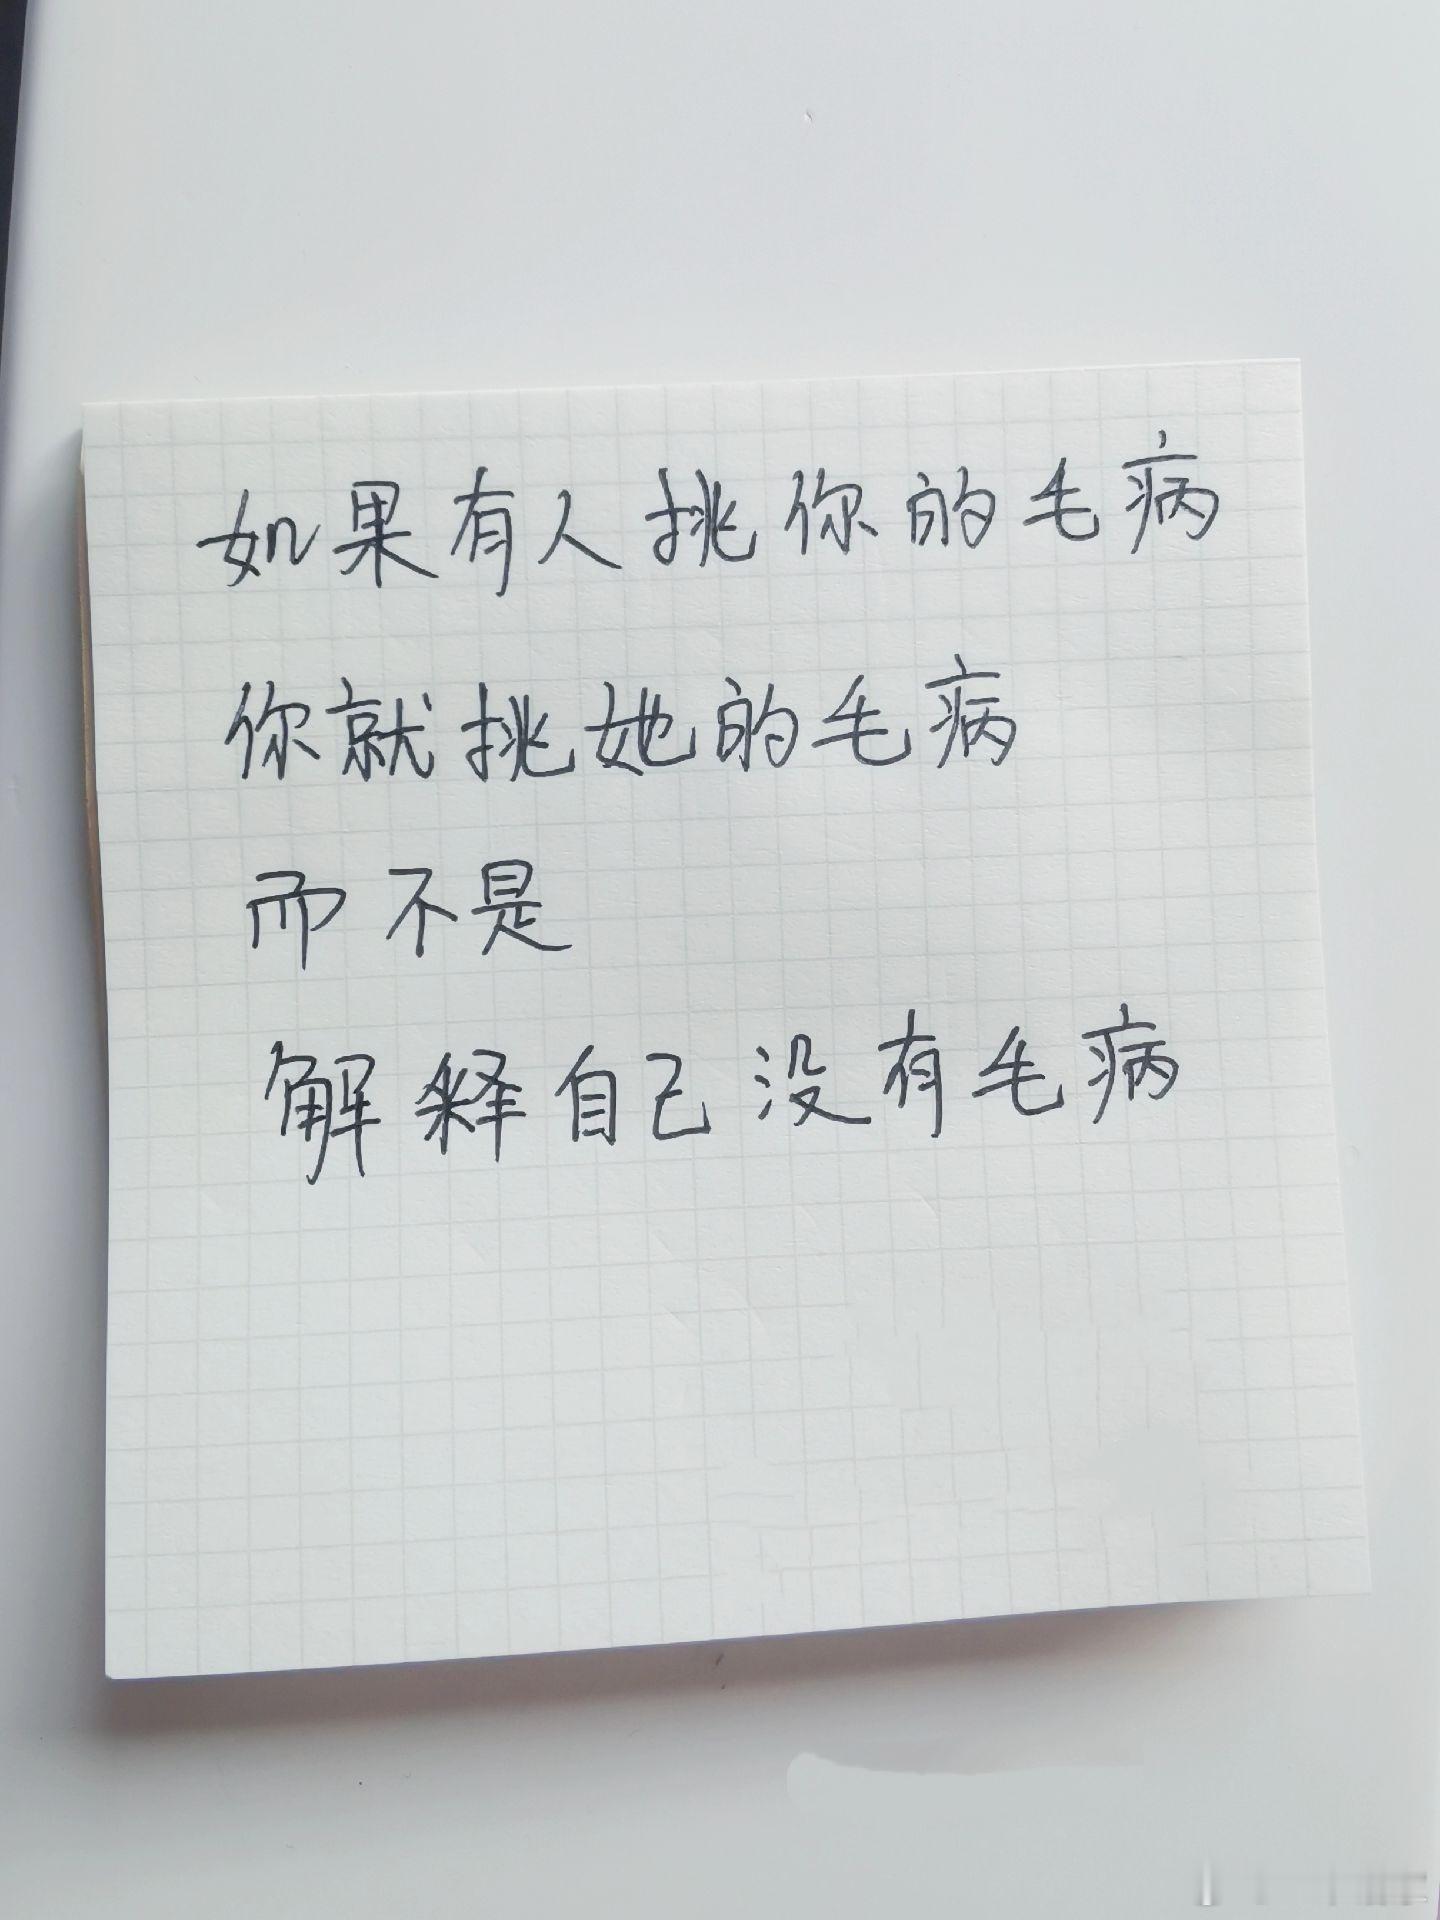 如果有人挑你的毛病
你就挑她的毛病
而不是
解释自己没有毛病